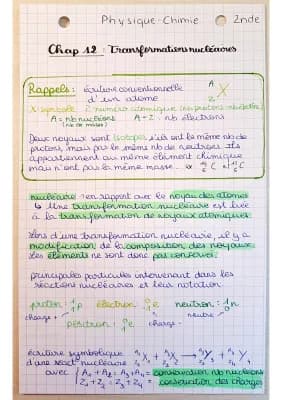 Physique-Chimie 2nde
Chap 12 : Transformations nucléaires
Rappels : écriture conventionnelle A X
d'un atome Z
X : symbole Z : numéro atomique
A = nb nucléons A - Z : nb
(nb de masse)
Deux noyaux sont isotopes s'ils ont le même nb de
protons, mais pas le même nb de neutrons. Ils
appartiennent au même élément chimique
mais n'ont pas la même masse.
nucléaire : en rapport avec le noyau des atomes
↳ Une transformation nucléaire est liée
à la transformation de noyaux atomiques.
Lors d'une transformation nucléaire, il y a
modification de la composition des noyaux.
Les éléments ne sont donc pas conservés.
principales particules intervenant dans les
réactions nucléaires et leur notation
proton : 1 1 p électron 0 -1 e neutron : 1 0 n
charge + neutre
positron : 0 1 e charge -
écriture symbolique A1 Z1 X1 + A2 Z2 X2 → A3 Z3 Y3 + A4 Z4 Y4
d'une réact nucléaire
avec { A1 + A2 = A3 + A4 = conservation nb nucléons
Z1 + Z2 = Z3 + Z4 = conservation des charges